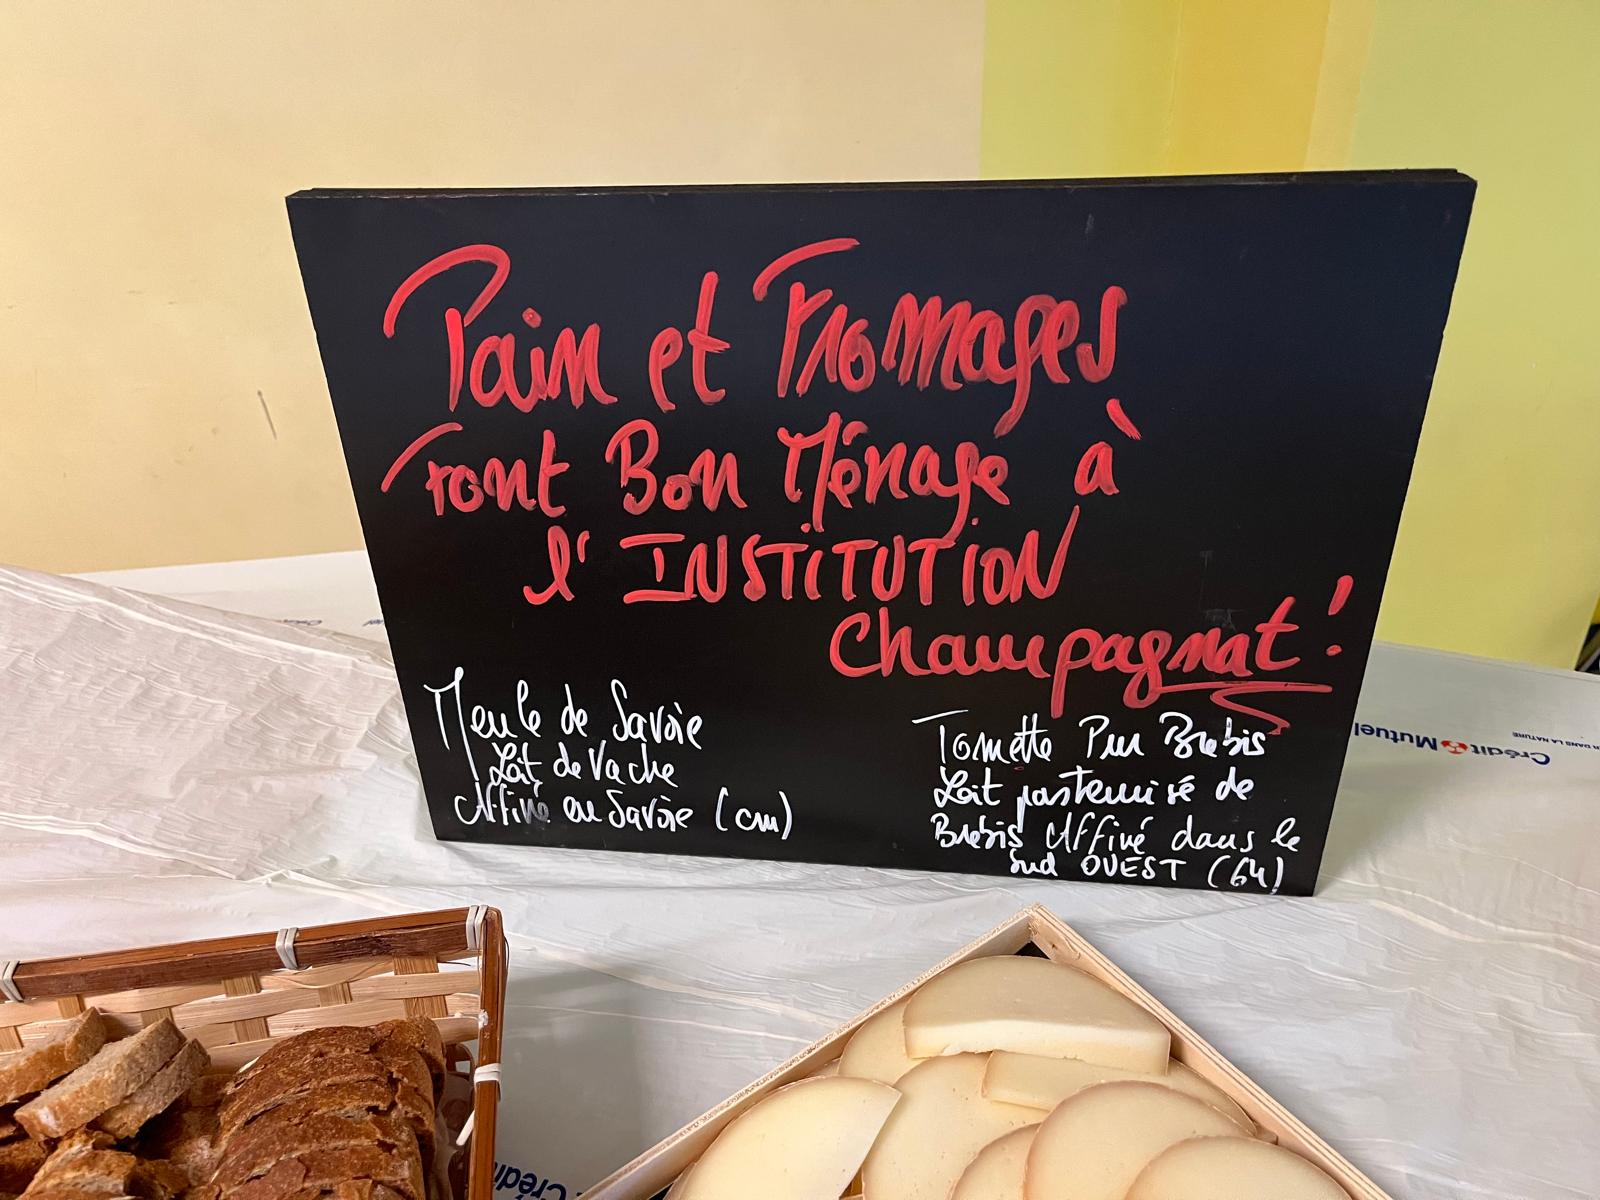 Pain et Fromages
Font Bon Ménage à
l'INSTITUTION
Champagnat !
Meule de Savoie
Lait de Vache
Affiné en Savoie (cru)
Tomette Pur Brebis
Lait pasteurisé de
Brebis Affiné dans le
Sud OUEST (64)
Crédit Mutuel
R DANS LA NATURE